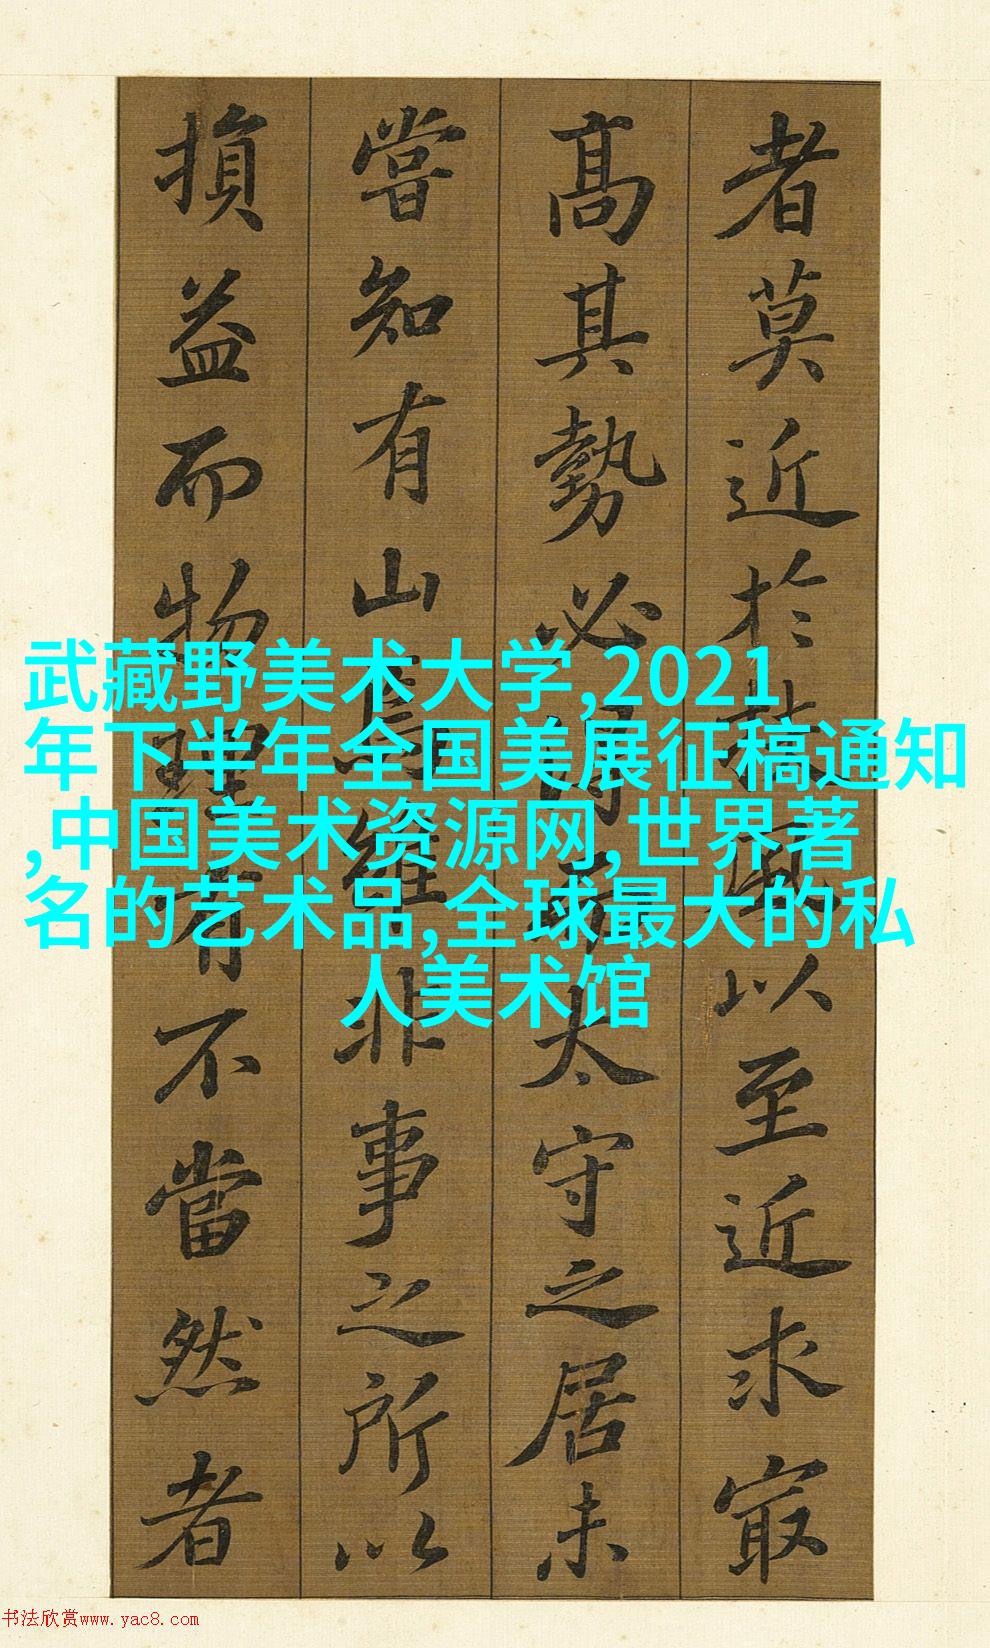 者莫近於扶風以至近求冣
高其勢必得而太守之居未
嘗知有山焉雖非事之所以
損益而物理有不當然者
武藏野美术大学,2021
年下半年全国美展征稿通知
,中国美术资源网,世界著
名的艺术品,全球最大的私
人美术馆
书法欣赏www.yac8.com